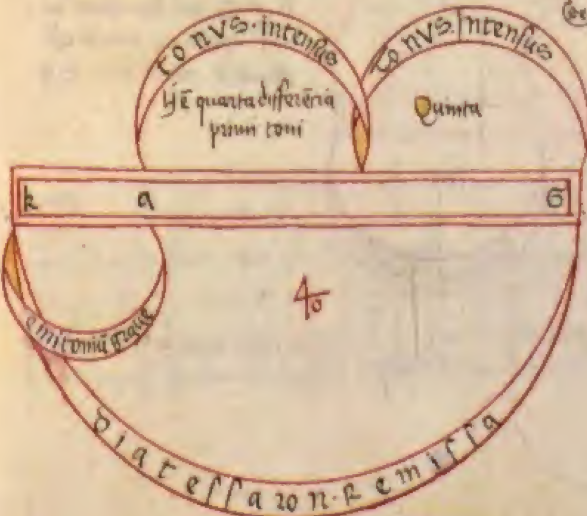 tonus · intensus
tonus · Intensus
Hec ē quarta differēcia
primi toni
Quinta
k a G
4ᵒ
emitoniū graue
diatessaron · Remissa